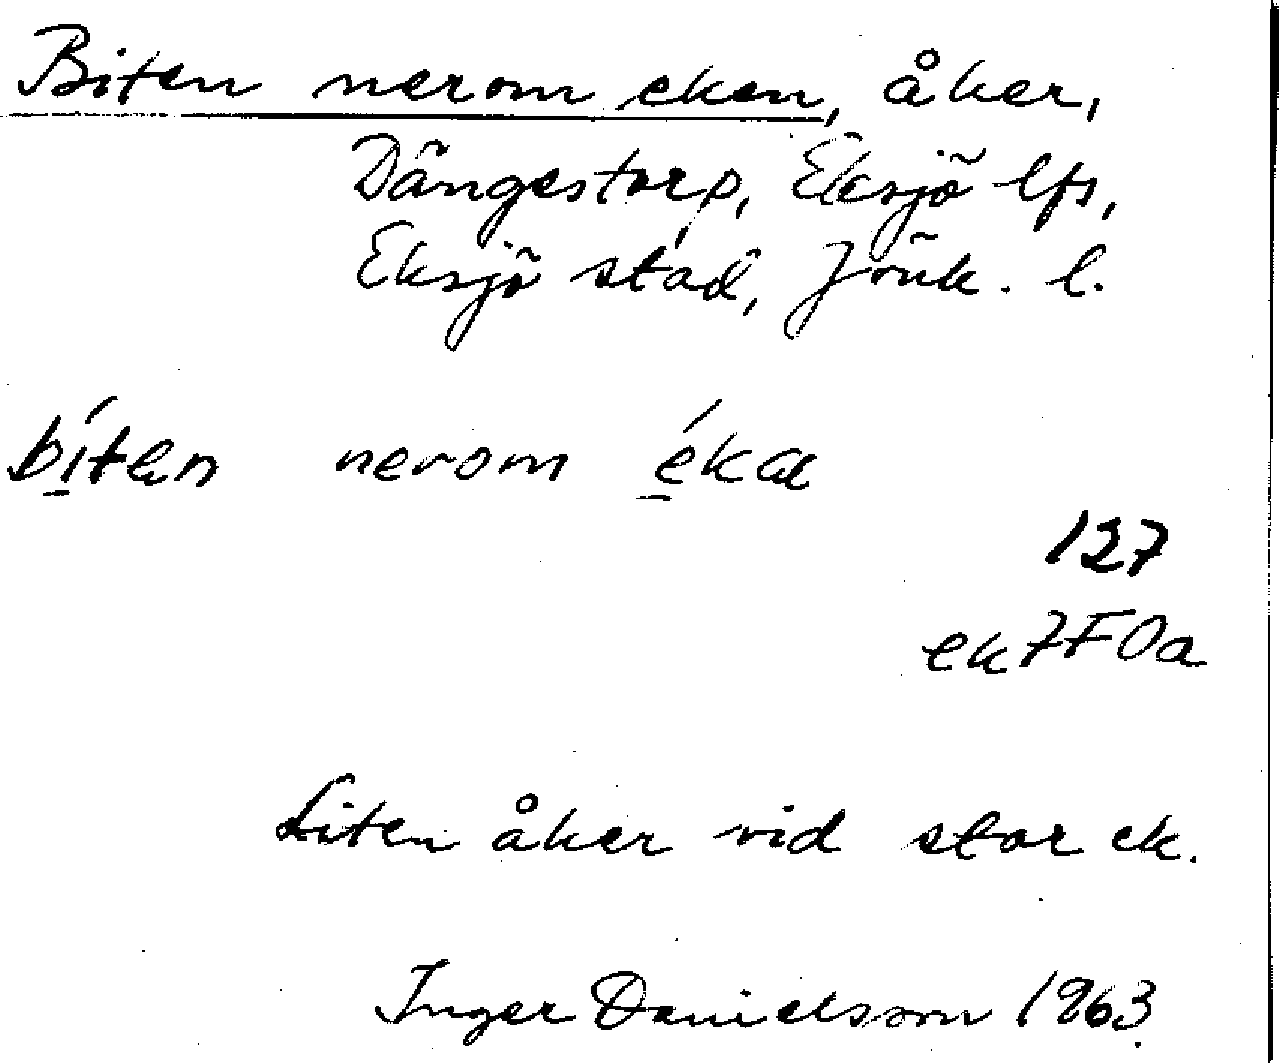 Biten nerom eken, åker,
Dängestorp, Eksjö lfs,
Eksjö stad, Jönk. l.
bíten nerom éka
127
ek 7F0a
Liten åker vid stor ek.
Inger Danielsson 1963